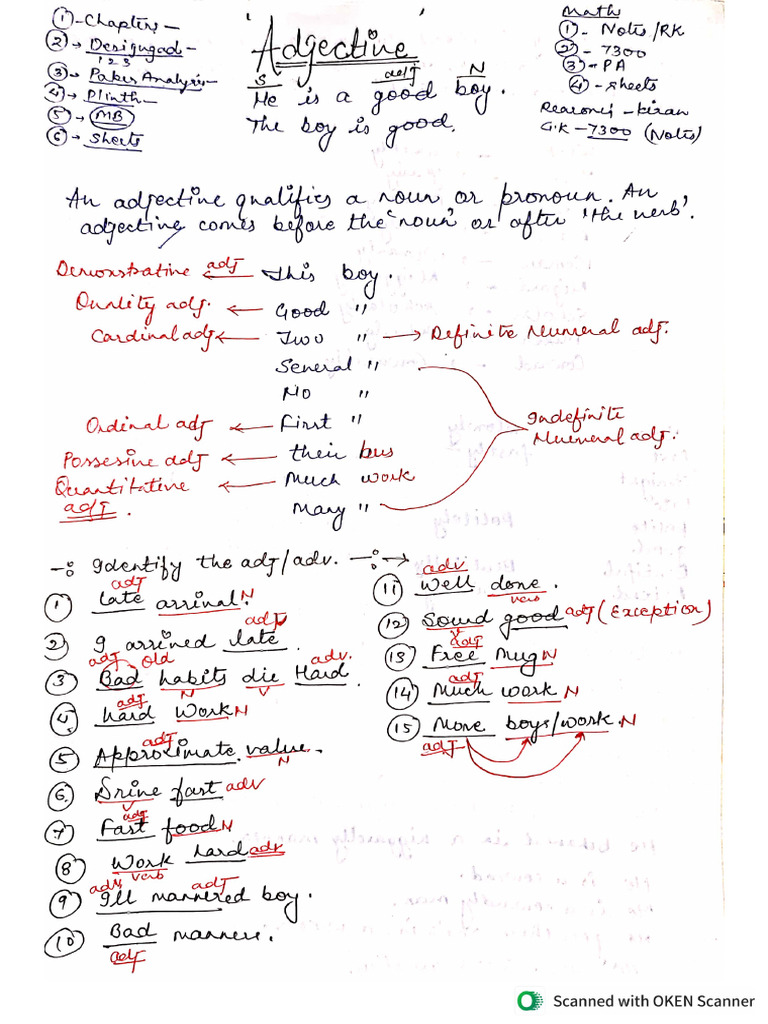 ① - Chapters -
② → Designgad -
1 2 3
③ → Paker Analysis -
④ → Plinth -
⑤ → MB
⑥ → Sheets
'Adjective'
S adj N
He is a good boy.
The boy is good.
Math
① - Notes/RK
② - 7300
③ - PA
④ - sheets
Reasoning - kiran
G.K - 7300 (Notes)
An adjective qualifies a noun or pronoun. An
adjective comes before the 'noun' or after 'the verb'.
Demonstrative adj ← This boy.
Quality adj. ← Good "
Cardinal adj ← Two " → Definite Numeral adj.
Several "
No "
Indefinite
Numeral adj.
Ordinal adj ← First "
Possesive adj ← their bus
Quantitative ← Much work
adj.
Many "
-: Identify the adj/adv. -: →
adj
① Late arrival. N
adj
② I arrived late.
adj old adv.
③ Bad habits die Hard.
N V
adj
④ Hard Work N
adj
⑤ Approximate value.
N
⑥ Drive fast adv
V
adj
⑦ Fast food N
⑧ Work hard adv
verb
adv adj
⑨ Ill mannered boy.
⑩ Bad manners.
adj
adv
⑪ Well done.
verb
⑫ Sound good adj (Exception)
V
adj
⑬ Free mug N
adj
⑭ Much work N
⑮ More boys/work N
adj
Scanned with OKEN Scanner